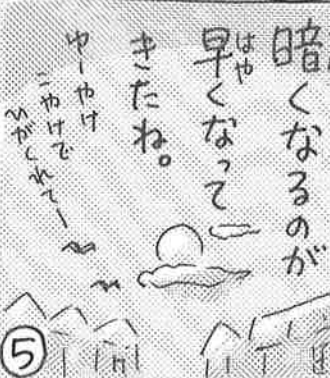 暗くなるのが
早くなって
きたね。
ゆーやけ
こやけで
ひがくれてー
⑤